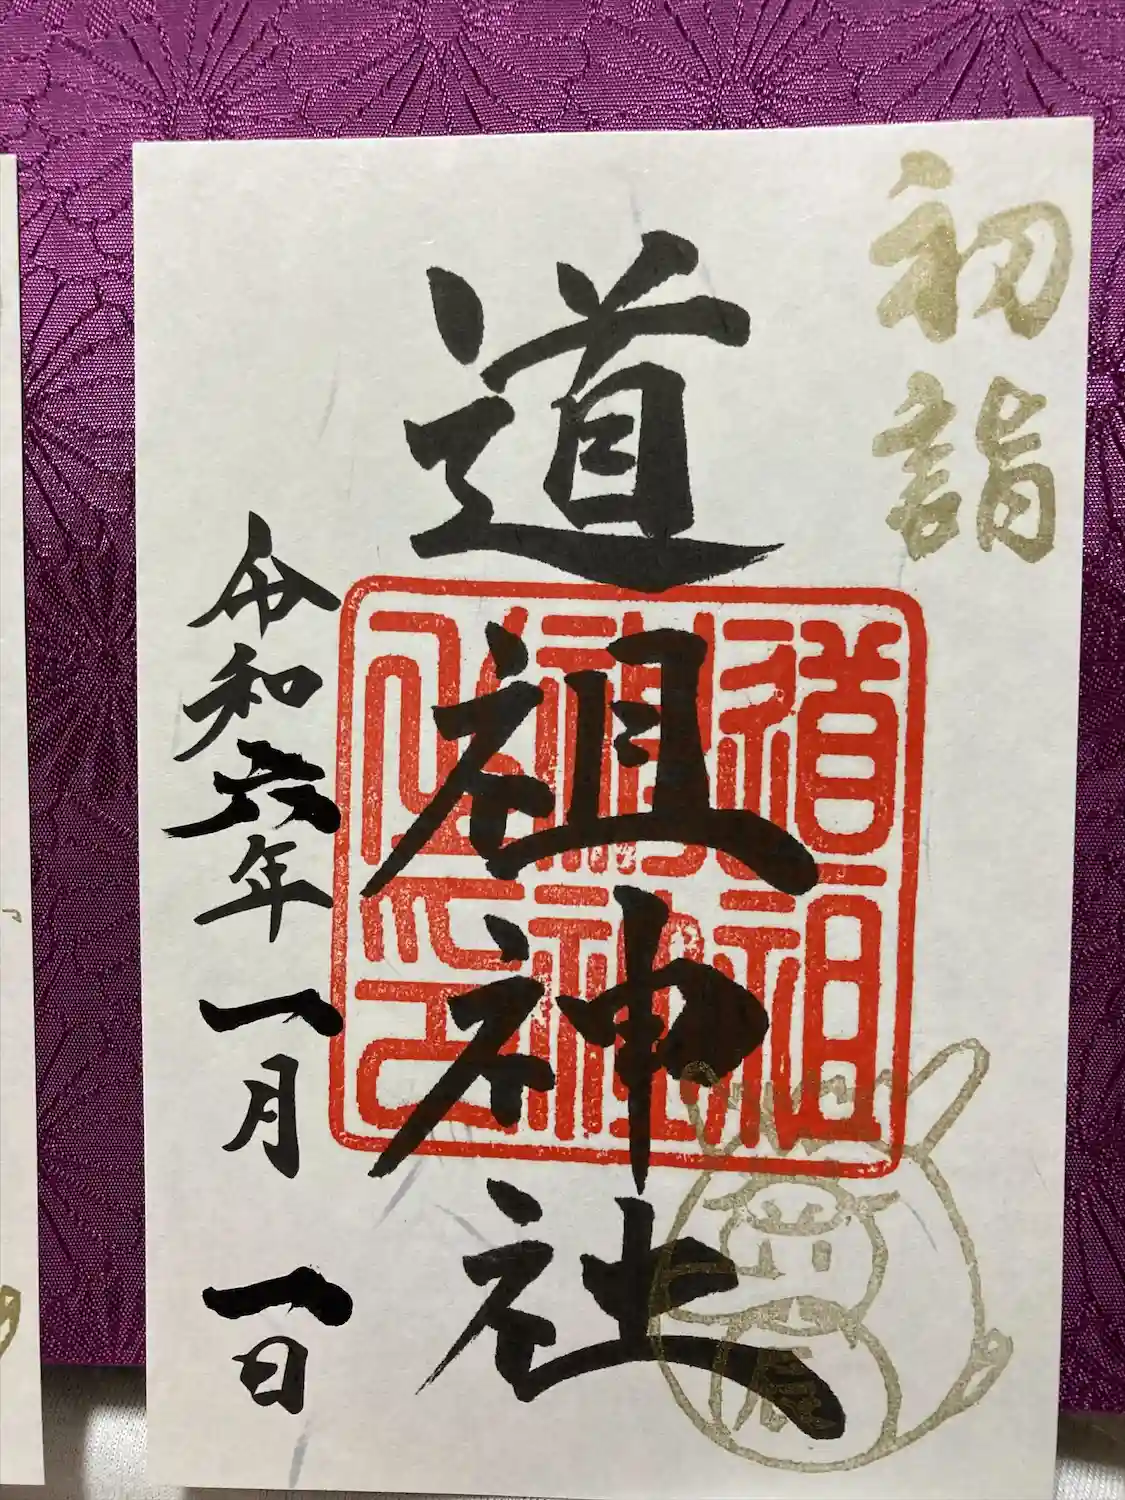 初詣
道祖神社
道祖神社
令和六年一月一日